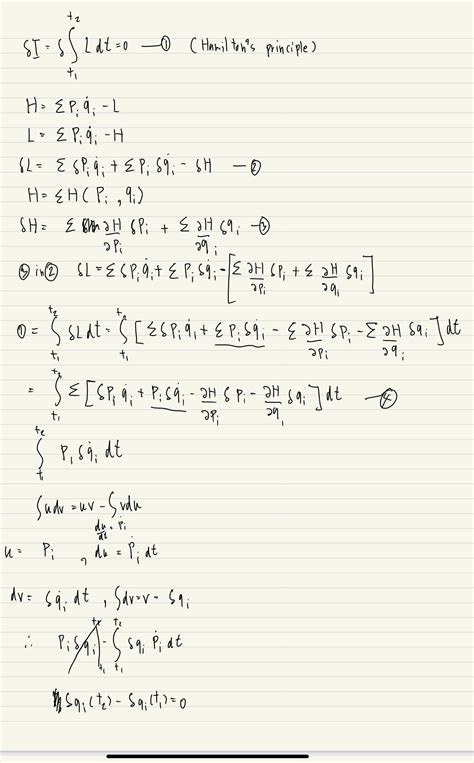 δI = δ∫_{t₁}^{t₂} L dt = 0 —① (Hamilton's principle)
H = Σ P_i q̇_i - L
L = Σ P_i q̇_i - H
δL = Σ δP_i q̇_i + Σ P_i δq̇_i - δH —②
H = ΣH(P_i, q_i)
δH = Σ ∂H/∂P_i δP_i + Σ ∂H/∂q_i δq_i —③
③ in ② δL = Σ δP_i q̇_i + Σ P_i δq̇_i - [Σ ∂H/∂P_i δP_i + Σ ∂H/∂q_i δq_i]
① = ∫_{t₁}^{t₂} δL dt = ∫_{t₁}^{t₂} [Σ δP_i q̇_i + Σ P_i δq̇_i - Σ ∂H/∂P_i δP_i - Σ ∂H/∂q_i δq_i] dt
= ∫_{t₁}^{t₂} Σ [δP_i q̇_i + P_i δq̇_i - ∂H/∂P_i δP_i - ∂H/∂q_i δq_i] dt —④
∫_{t₁}^{t₂} P_i δq̇_i dt
∫u dv = uv - ∫v du
du/dt = Ṗ_i
u = P_i , du = Ṗ_i dt
dv = δq̇_i dt , ∫dv = v - δq_i
∴ P_i δq_i |_{t₁}^{t₂} - ∫_{t₁}^{t₂} δq_i Ṗ_i dt
δq_i(t₂) - δq_i(t₁) = 0